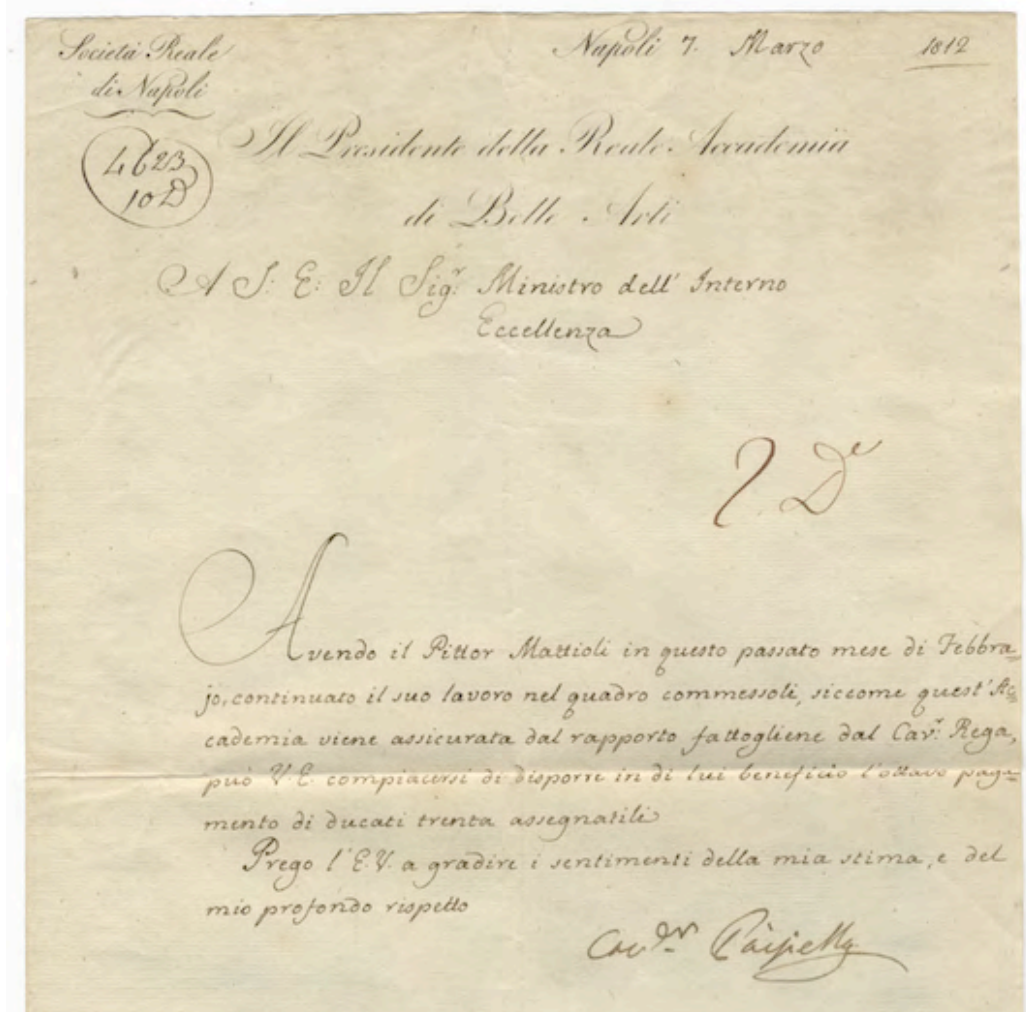 Società Reale
di Napoli
Napoli 7. Marzo 1812
4623
10 D
Il Presidente della Reale Accademia
di Belle Arti
A S: E: Il Sig.r Ministro dell' Interno
Eccellenza
2. De
Avendo il Pittor Mattioli in questo passato mese di Febbra=
jo, continuato il suo lavoro nel quadro commessoli, siccome quest' Ac=
cademia viene assicurata dal rapporto fattogliene dal Cav.r Rega,
può V.E. compiacersi di disporre in di lui beneficio l'ottavo paga=
mento di ducati trenta assegnatili
Prego l'E.V. a gradire i sentimenti della mia stima, e del
mio profondo rispetto